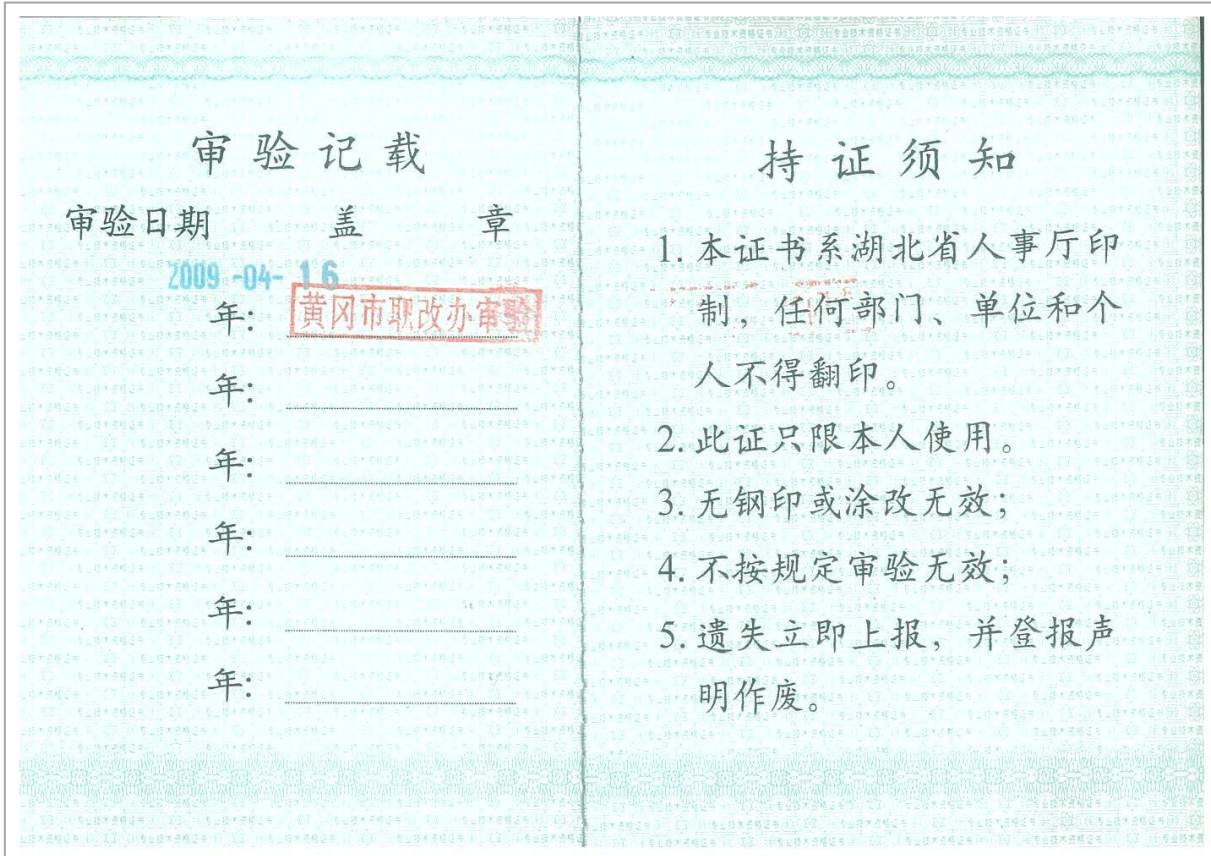 审验记载
审验日期 盖 章
2009-04-16
年: 黄冈市职改办审验
年:
年:
年:
年:
年:
持证须知
1. 本证书系湖北省人事厅印
制，任何部门、单位和个
人不得翻印。
2. 此证只限本人使用。
3. 无钢印或涂改无效；
4. 不按规定审验无效；
5. 遗失立即上报，并登报声
明作废。